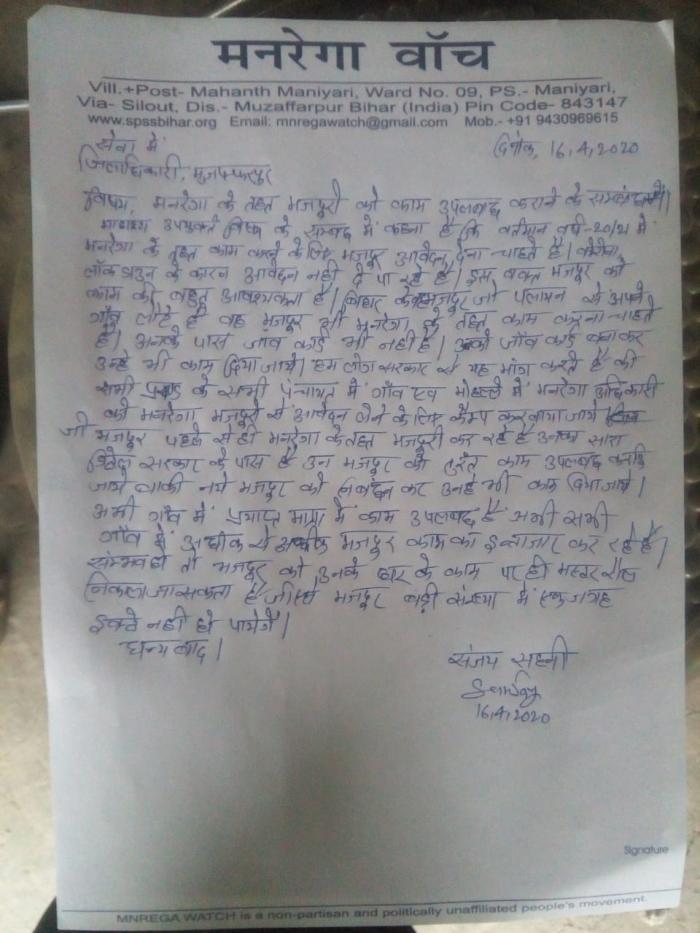 मनरेगा वॉच
Vill.+Post- Mahanth Maniyari, Ward No. 09, PS.- Maniyari,
Via- Silout, Dis.- Muzaffarpur Bihar (India) Pin Code- 843147
www.spssbihar.org Email: mnregawatch@gmail.com Mob.- +91 9430969615
सेवा में
दिनांक, 16,4,2020
जिलाधिकारी, मुजफ्फरपुर
विषय, मनरेगा के तहत मजदुरो को काम उपलबद्ध कराने के सम्बंध में।
महाशय उपयुक्त विषय के सम्बंद में कहना है कि वर्तमान वर्ष-20/21 मे
मनरेगा के तहत काम करने के लिए मजदुर आवेदन देना चाहते है। कोरोना
लॉक डाउन के कारन आवेदन नही दे पा रहे है। इस वक्त मजदुर को
काम की बहुत आवश्यकता है। बिहार के मजदुर जो पलायन से अपने
गाँव लौटे है वह मजदुर भी मनरेगा के तहत काम करना चाहते
है। उनके पास जाब कार्ड भी नही है। उनको जॉब कार्ड बनाकर
उन्हे भी काम दिया जाये। हम लोग सरकार से यह मांग करते है की
सभी प्रखंड के सभी पंचायत में गाँव एव मोहल्ले में मनरेगा अधिकारी
को मनरेगा मजदुरो से आवेदन लेने के लिए कैम्प करवाया जाये
जो मजदुर पहले से ही मनरेगा के तहत मजदुरी कर रहे है उनका सारा
डिटेल सरकार के पास है उन मजदुर को तुरंत काम उपलबद कराई
जाये बाकी नये मजदुर को निबंधन कर उनहे भी काम दिया जाये।
अभी गाँव में प्रयाप्त मात्रा में काम उपलबद है अभी सभी
गाँव में अधीक से अधीक मजदुर काम का इन्तजार कर रहे है।
संम्भव हो तो मजदुर को उनके घर के काम पर ही मस्टर रौल
निकाला जा सकता है जीससे मजदुर बड़ी संख्या में एक जगह
इकठे नही हो पायेगें।
धन्यबाद।
संजय सहनी
16,4,2020
Signature
MNREGA WATCH is a non-partisan and politically unaffiliated people's movement.